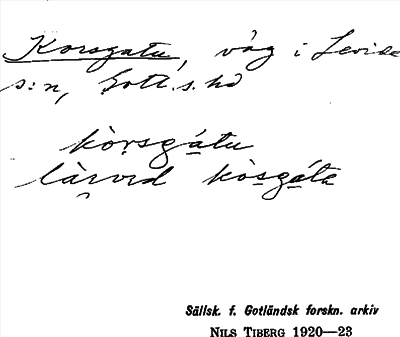 Korsgatu, väg i Levide
s:n, Gotl.s. hd
kòrsgátu
làrvrd kòsgáta
Sällsk. f. Gotländsk forskn. arkiv
NILS TIBERG 1920—23